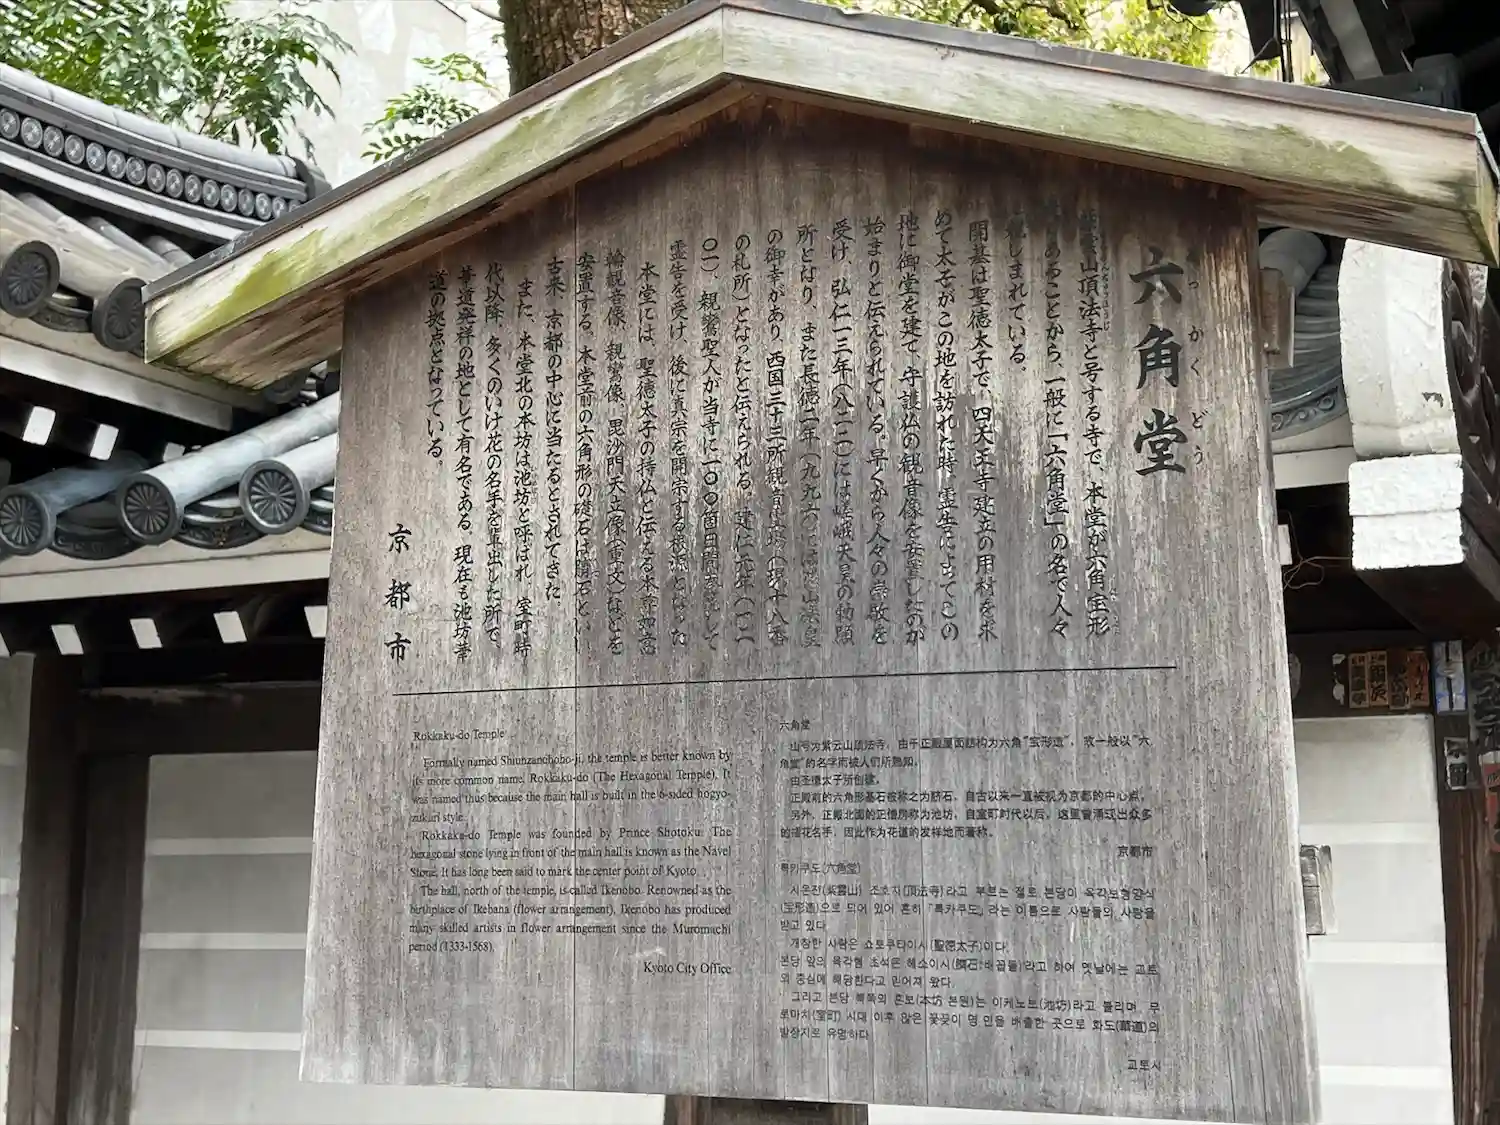 六角堂
っかくどう
山頂法寺と号する寺で、本堂が六角宝形
あることから、一般に「六角堂」の名で人々
しまれている。
開基は聖徳太子で、四天王寺建立の用材を求
めて太子がこの地を訪れた時、霊告によってこの
地に御堂を建て、守護仏の観音像を安置したのが
始まりと伝えられている。早くから人々の崇敬を
受け、弘仁十三年(八二二)には嵯峨天皇の勅願
所となり、また長徳二年(九九六)には花山法皇
の御幸があり、西国三十三所観音霊場(現十八番
の札所)となったと伝えられる。建仁元年(一二
〇一)、親鸞聖人が当寺に一〇〇箇日間参籠して
霊告を受け、後に真宗を開宗する根源となった
本堂には、聖徳太子の持仏と伝える本尊如意
輪観音像、親鸞像、毘沙門天立像(重文)などを
安置する。本堂前の六角形の礎石は臍石といい
古来、京都の中心に当たるとされてきた。
また、本堂北の本坊は池坊と呼ばれ、室町時
代以降、多くのいけ花の名手を輩出した所で、
華道発祥の地として有名である。現在も池坊華
道の拠点となっている。
京都市
Rokkaku-do Temple
Formally named Shiunzanchoho-ji, the temple is better known by
its more common name, Rokkaku-do (The Hexagonal Temple). It
was named thus because the main hall is built in the 6-sided hogyo-
zukuri style.
Rokkaku-do Temple was founded by Prince Shotoku. The
hexagonal stone lying in front of the main hall is known as the Navel
Stone. It has long been said to mark the center point of Kyoto.
The hall, north of the temple, is called Ikenobo. Renowned as the
birthplace of Ikebana (flower arrangement), Ikenobo has produced
many skilled artists in flower arrangement since the Muromachi
period (1333-1568).
Kyoto City Office
六角堂
山号为紫云山顶法寺，由于正殿屋面结构为六角"宝形造"，故一般以"六
角堂"的名字而被人们所熟知。
由圣德太子所创建。
正殿前的六角形基石被称之为脐石，自古以来一直被视为京都的中心点。
另外，正殿北面的正僧房称为池坊，自室町时代以后，这里曾涌现出众多
的插花名手，因此作为花道的发祥地而著称。
京都市
록카쿠도(六角堂)
시운잔(紫雲山) 초호지(頂法寺)라고 부르는 절로 본당이 육각보형양식
(宝形造)으로 되어 있어 흔히 「록카쿠도」라는 이름으로 사람들의 사랑을
받고 있다.
개창한 사람은 쇼토쿠타이시(聖徳太子)이다.
본당 앞의 육각형 초석은 헤소이시(臍石:배꼽돌)라고 하여 옛날에는 교토
의 중심에 해당한다고 믿어져 왔다.
그리고 본당 북쪽의 혼보(本坊 본원)는 이케노보(池坊)라고 불리며 무
로마치(室町) 시대 이후 많은 꽃꽂이 명인을 배출한 곳으로 화도(華道)의
발상지로 유명하다
교토시